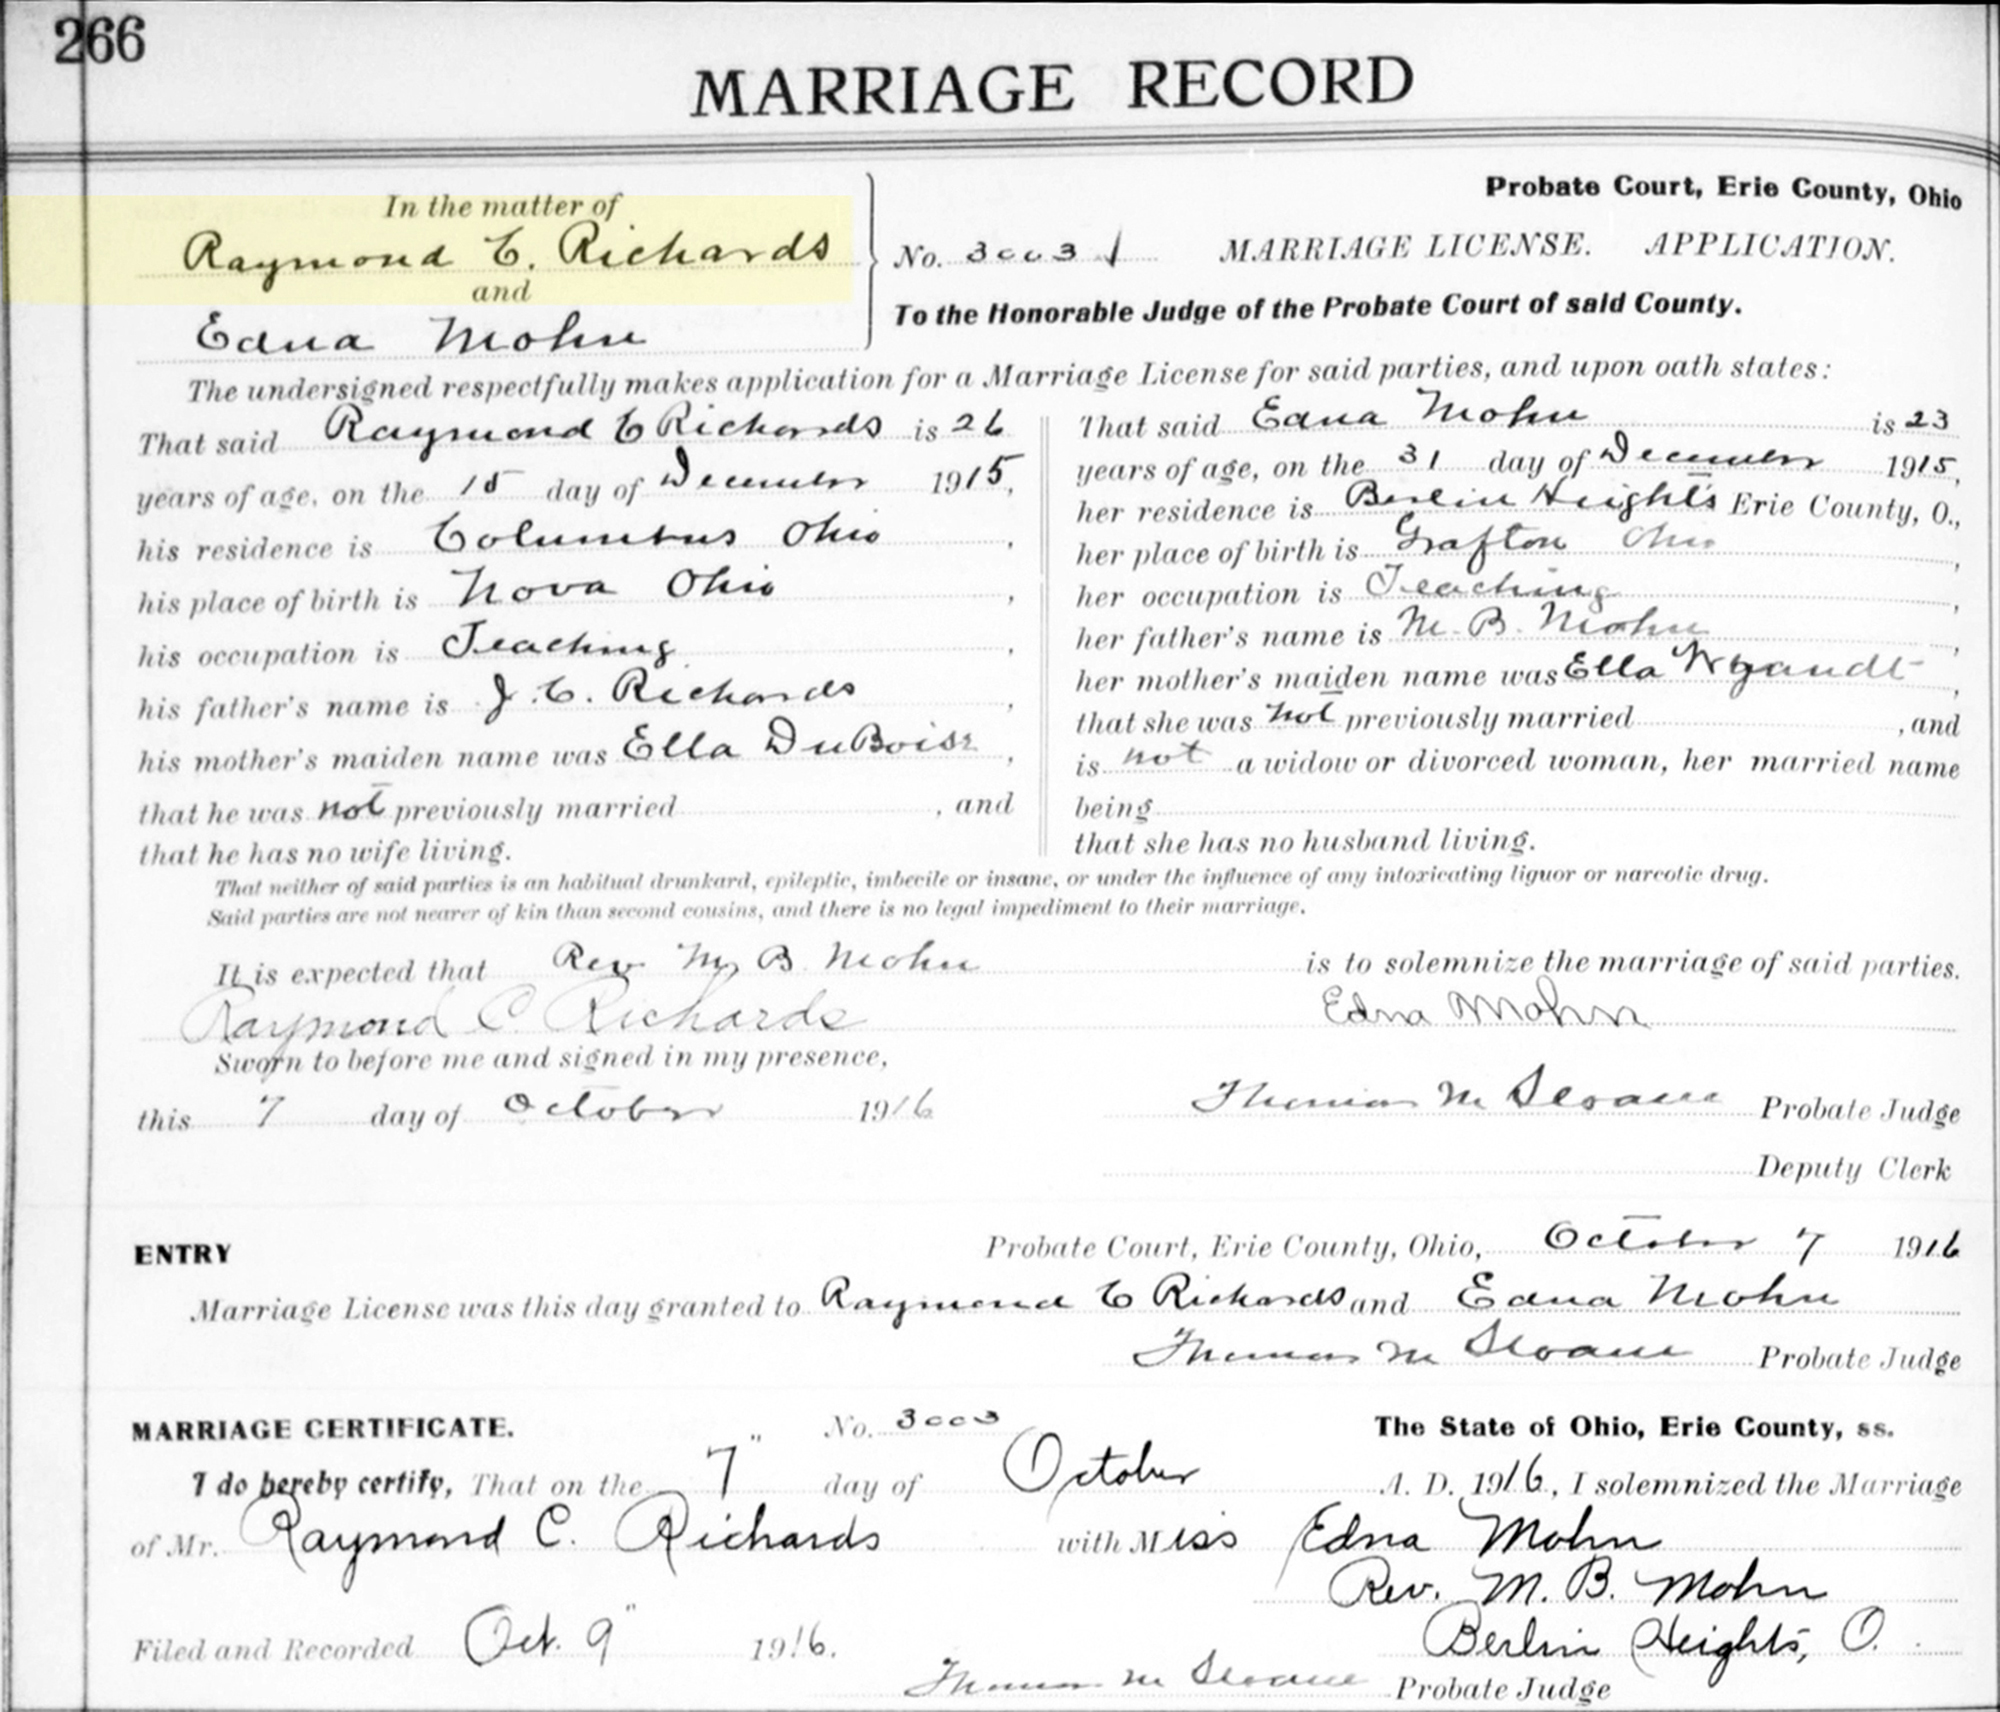 266
MARRIAGE RECORD
Probate Court, Erie County, Ohio
In the matter of
Raymond C. Richards
and
Edna Mohn
No. 3003 MARRIAGE LICENSE. APPLICATION.
To the Honorable Judge of the Probate Court of said County.
The undersigned respectfully makes application for a Marriage License for said parties, and upon oath states:
That said Raymond C Richards is 26
years of age, on the 15 day of December 1915,
his residence is Columbus Ohio,
his place of birth is Nova Ohio,
his occupation is Teaching,
his father's name is J. C. Richards,
his mother's maiden name was Ella DuBois,
that he was not previously married, and
that he has no wife living.
That said Edna Mohn is 23
years of age, on the 31 day of December 1915,
her residence is Berlin Heights Erie County, O.,
her place of birth is Grafton Ohio,
her occupation is Teaching,
her father's name is M. B. Mohn,
her mother's maiden name was Ella Wyandt,
that she was not previously married, and
is not a widow or divorced woman, her married name
being
that she has no husband living.
That neither of said parties is an habitual drunkard, epileptic, imbecile or insane, or under the influence of any intoxicating liquor or narcotic drug.
Said parties are not nearer of kin than second cousins, and there is no legal impediment to their marriage.
It is expected that Rev M. B. Mohn is to solemnize the marriage of said parties.
Raymond C. Richards Edna Mohn
Sworn to before me and signed in my presence,
this 7 day of October 1916 Thomas M Sloane Probate Judge
Deputy Clerk
ENTRY Probate Court, Erie County, Ohio, October 7 1916
Marriage License was this day granted to Raymond C Richards and Edna Mohn
Thomas M Sloane Probate Judge
MARRIAGE CERTIFICATE. No. 3003 The State of Ohio, Erie County, ss.
I do hereby certify, That on the 7" day of October A. D. 1916, I solemnized the Marriage
of Mr. Raymond C. Richards with Miss Edna Mohn
Rev. M. B. Mohn
Berlin Heights, O.
Filed and Recorded Oct. 9" 1916.
Thomas M Sloane Probate Judge